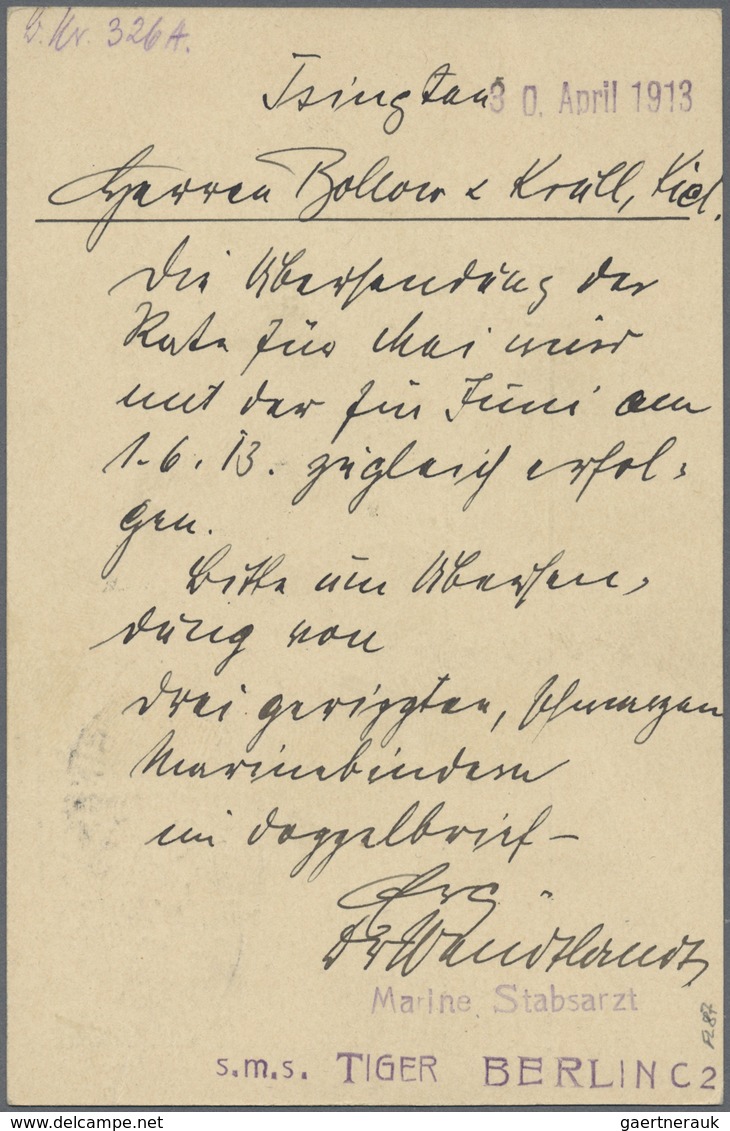 B. Nr. 326A.
Tsingtau 30. April 1913
Herren Bollow & Krull, Kiel.
Die Übersendung der
Rate für Mai wird
mit der für Juni am
1.6.13. zugleich erfol-
gen.
Bitte um Übersen-
dung von
drei gerippten, schwarzen
Marinebindern
im Doppelbrief –
Dr Wendtlandt
Marine Stabsarzt
s.m.s. TIGER BERLIN C2
gaertnerauk